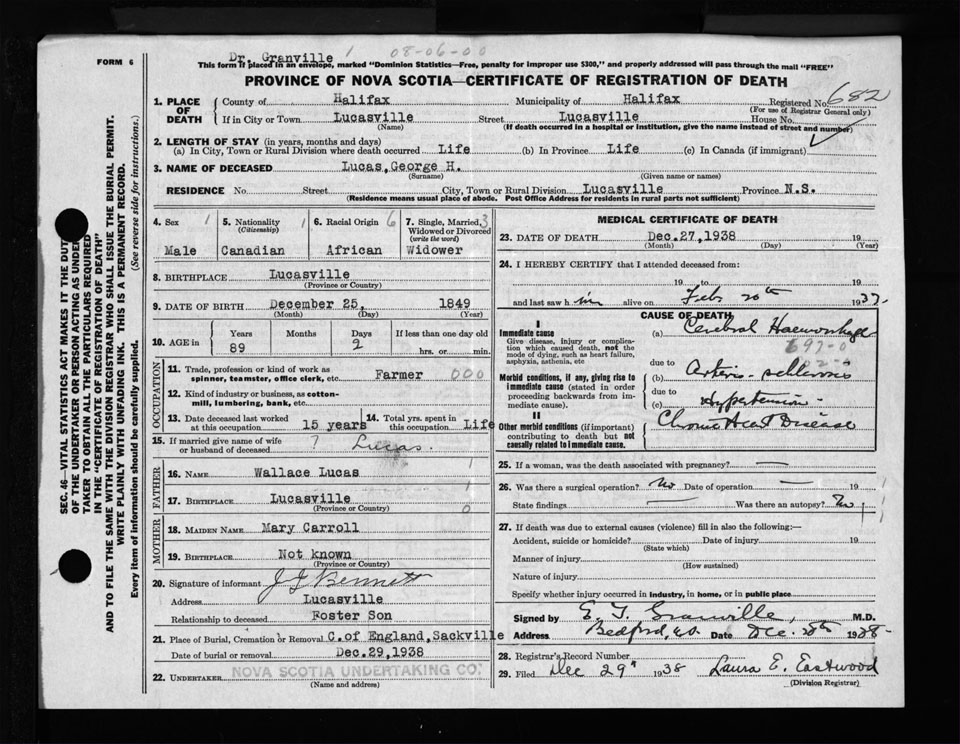 Dr. Granville 1 08-06-00
FORM 6
This form if placed in an envelope, marked "Dominion Statistics—Free, penalty for improper use $300," and properly addressed will pass through the mail "FREE"
PROVINCE OF NOVA SCOTIA—CERTIFICATE OF REGISTRATION OF DEATH
SEC. 46—VITAL STATISTICS ACT MAKES IT THE DUTY
OF THE UNDERTAKER OR PERSON ACTING AS UNDER-
TAKER TO OBTAIN ALL THE PARTICULARS REQUIRED
IN THE "CERTIFICATE OF REGISTRATION OF DEATH"
AND TO FILE THE SAME WITH THE DIVISION REGISTRAR WHO SHALL ISSUE THE BURIAL PERMIT.
WRITE PLAINLY WITH UNFADING INK. THIS IS A PERMANENT RECORD.
Every item of information should be carefully supplied. (See reverse side for instructions.)
1. PLACE OF DEATH
County of Halifax Municipality of Halifax Registered No. 682
(For use of Registrar General only)
If in City or Town Lucasville Street Lucasville House No.
(Name) (If death occurred in a hospital or institution, give the name instead of street and number)
2. LENGTH OF STAY (in years, months and days)
(a) In City, Town or Rural Division where death occurred Life (b) In Province Life (c) In Canada (if immigrant)
3. NAME OF DECEASED Lucas, George H.
(Surname) (Given name or names)
RESIDENCE No. Street City, Town or Rural Division Lucasville Province N.S.
(Residence means usual place of abode. Post Office Address for residents in rural parts not sufficient)
4. Sex 1 Male
5. Nationality 1 (Citizenship) Canadian
6. Racial Origin 6 African
7. Single, Married, 3 Widowed or Divorced (write the word) Widower
8. BIRTHPLACE Lucasville
(Province or Country)
9. DATE OF BIRTH December 25, 1849
(Month) (Day) (Year)
10. AGE in Years Months Days If less than one day old
89 2 hrs. or min.
OCCUPATION
11. Trade, profession or kind of work as
spinner, teamster, office clerk, etc. Farmer 000
12. Kind of industry or business, as cotton-
mill, lumbering, bank, etc.
13. Date deceased last worked
at this occupation 15 years
14. Total yrs. spent in
this occupation Life
15. If married give name of wife
or husband of deceased ? Lucas.
FATHER
16. NAME Wallace Lucas 1
17. BIRTHPLACE Lucasville 1
(Province or Country) 0
MOTHER
18. MAIDEN NAME Mary Carroll
19. BIRTHPLACE Not known
(Province or Country)
20. Signature of informant J J Bennett
Address Lucasville
Relationship to deceased Foster Son
21. Place of Burial, Cremation or Removal C. of England, Sackville
Date of burial or removal Dec. 29, 1938
22. UNDERTAKER NOVA SCOTIA UNDERTAKING CO.
(Name and address)
MEDICAL CERTIFICATE OF DEATH
23. DATE OF DEATH Dec. 27, 1938 19
(Month) (Day) (Year)
24. I HEREBY CERTIFY that I attended deceased from:
19 to 19
and last saw h im alive on Feb 20th 1937.
CAUSE OF DEATH
I
Immediate cause
Give disease, injury or complica-
tion which caused death, not the
mode of dying, such as heart failure,
asphyxia, asthenia, etc
(a) Cerebral Haemorrhage
due to
Morbid conditions, if any, giving rise to
immediate cause (stated in order
proceeding backwards from im-
mediate cause).
(b) Arterio-sclerosis
due to
(c) Hypertension -
II
Other morbid conditions (if important)
contributing to death but not
causally related to immediate cause.
Chronic Heart Disease
25. If a woman, was the death associated with pregnancy? —
26. Was there a surgical operation? No Date of operation — 19
State findings — Was there an autopsy? No
27. If death was due to external causes (violence) fill in also the following:—
Accident, suicide or homicide? Date of injury 19
(State which)
Manner of injury
(How sustained)
Nature of injury
Specify whether injury occurred in industry, in home, or in public place
Signed by E. T. Granville, M.D.
Address Bedford, N.S. Date Dec. 28th 1938.
28. Registrar's Record Number
29. Filed Dec 29th 1938 Laura E. Eastwood
(Division Registrar)